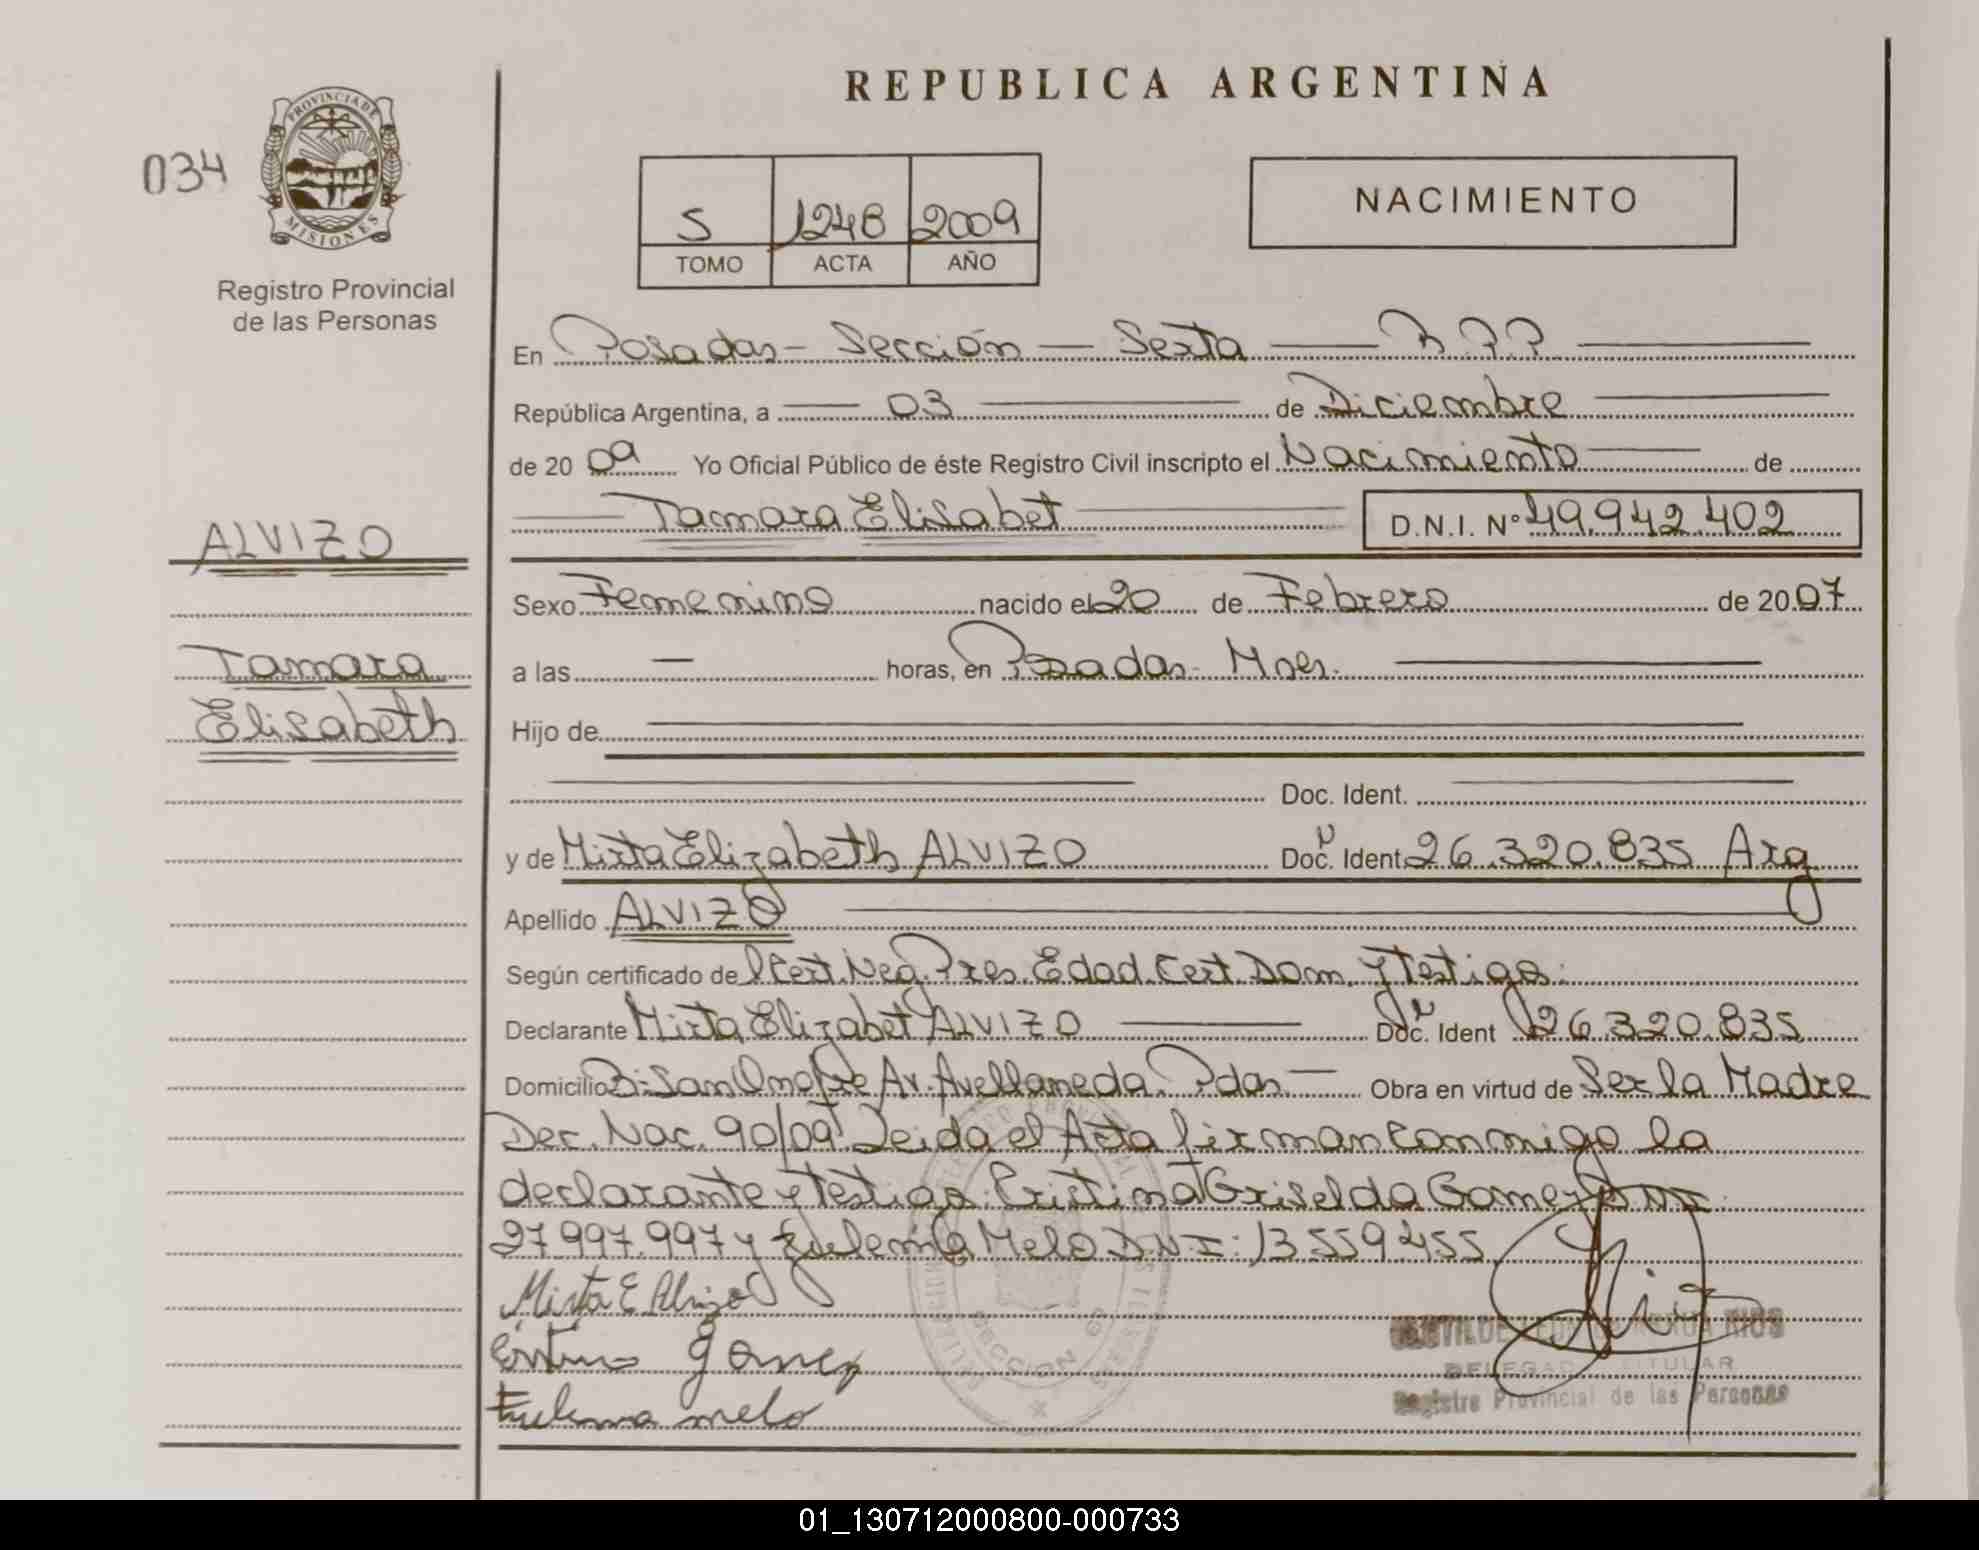 REPUBLICA ARGENTINA
034
PROVINCIA DE
MISIONES
Registro Provincial
de las Personas
5 1248 2009
TOMO ACTA AÑO
NACIMIENTO
En Posadas - Sección - Sexta - R.P.P.
República Argentina, a 03 de Diciembre
de 20 09 Yo Oficial Público de éste Registro Civil inscripto el Nacimiento de
Tamara Elisabet D.N.I. Nº 49.942.402
ALVIZO
Tamara
Elisabeth
Sexo Femenino nacido el 20 de Febrero de 20 07
a las — horas, en Posadas - Mnes.
Hijo de
Doc. Ident.
y de Mirta Elizabeth ALVIZO Doc. Ident. 26.320.835 Arg
Apellido ALVIZO
Según certificado de Cert. Neg. Pres. Edad. Cert. Dom. y Testigo.
Declarante Mirta Elizabet ALVIZO Doc. Ident 26.320.835
Domicilio B: San Onofre Av. Avellaneda. Pdas. Obra en virtud de Ser la Madre
Dec. Nac. 90/09. Leida el Acta firman conmigo la
declarante y Testigo: Cristina Griselda Gomez DNI
27.997.997 y Eufemia Melo D.N.I: 13559455
Mirta E Alvizo
Gomez
melo
DELEGADA TITULAR
Registro Provincial de las Personas
01_130712000800-000733